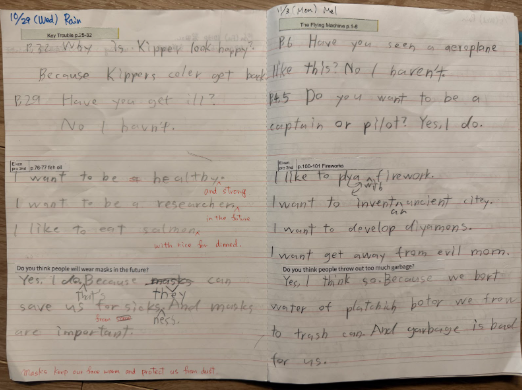 10/29 (Wed) Rain
Key Trouble p.28-32
P.32 Why is Kipper look happy?
Because Kippers coler get back
P.29 Have you get ill?
No I havn't.
I want to be a healthy.
and strong
I want to be a researcher,
in the future
I like to eat salmon,
with rice for dinned.
Do you think people will wear masks in the future?
Yes, I do. Because masks can
That's they
save us for sicks. And masks
from ness.
are important.
Masks keep our face warm and protect us from dust.
11/3 (Mon)
The Flying Machine p.1-8
P.6 Have you seen a aeroplane
like this? No I haven't.
P.4.5 Do you want to be a
captain or pilot? Yes, I do.
p.100-101 Fireworks
I like to firework.
with
I want to invent ancient city.
an
I want to develop diyamons.
I want get away from evil mom.
Do you think people throw out too much garbage?
Yes, I think so. Because we bort
water of botor we frow
to trash can And garbage is bad
for us.